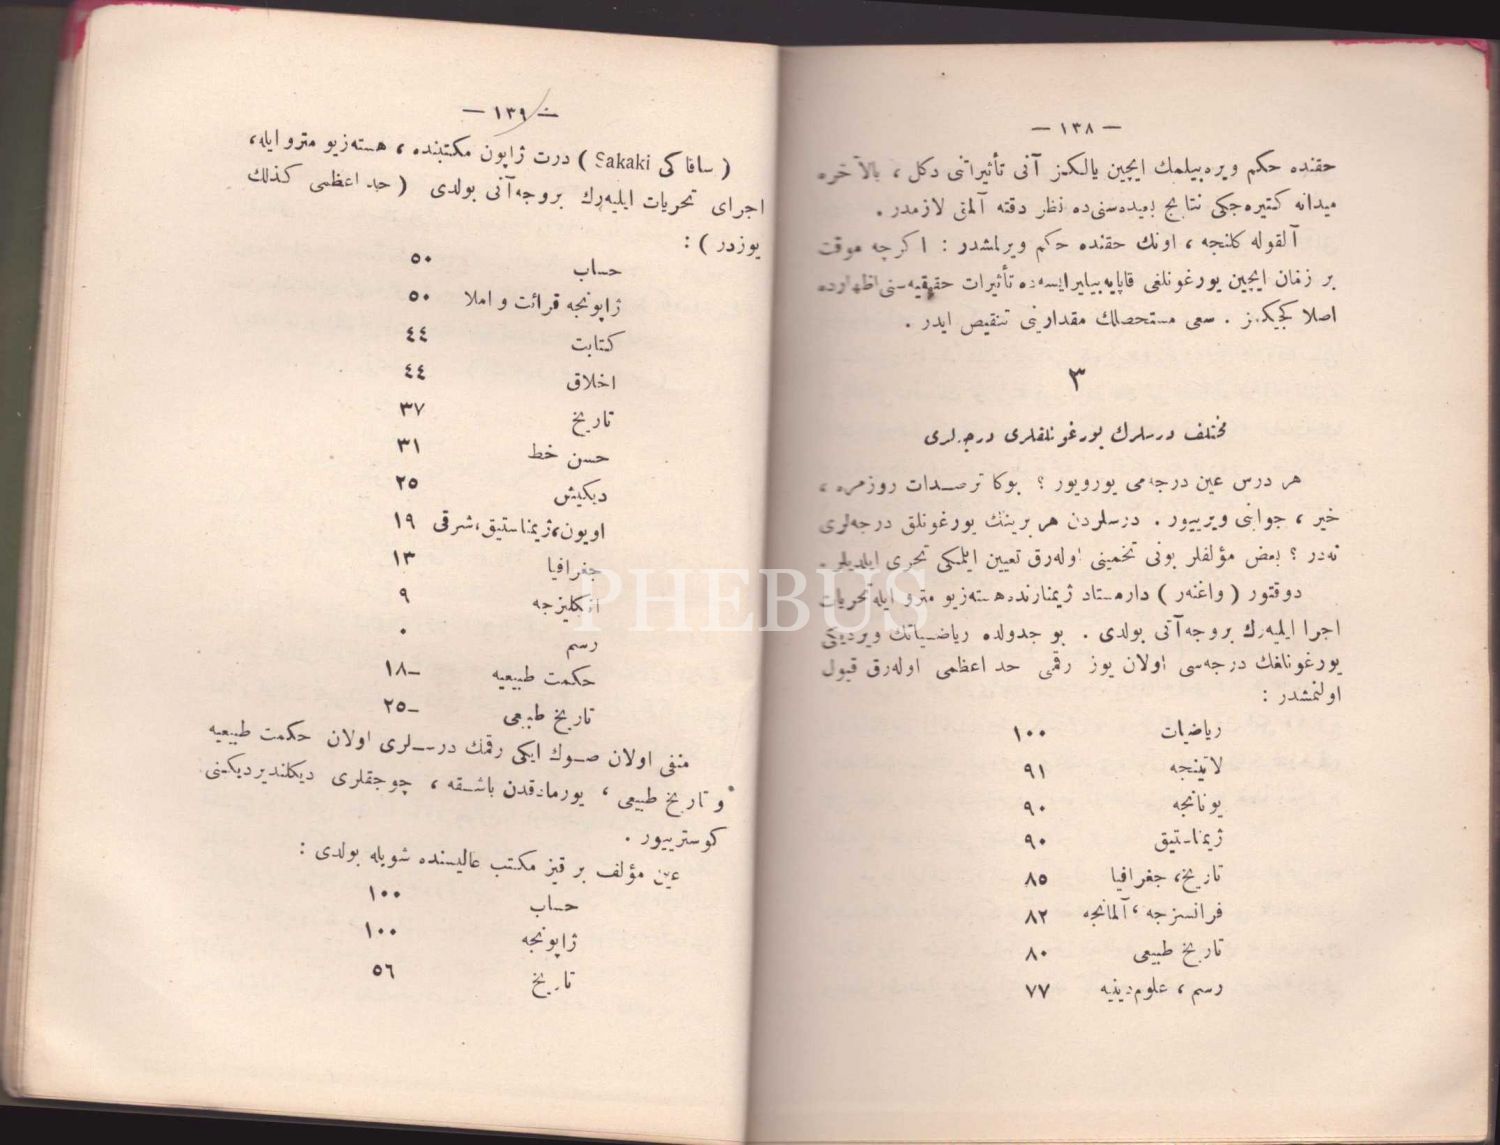 — ١٣٨ —
حقنده حكم ويره بيلمك ايچين يالكز آنى تأثيراتى دكل ، بالآخره
ميدانه كتيره‌جكى نتايج بعيده‌سنى‌ده نظر دقته آلمق لازمدر .
آلقوله كلنجه ، اونك حقنده حكم ويرلمشدر : اكرچه موقت
بر زمان ايچين يورغونلغى قاپايه‌بيليرايسه‌ده تأثيرات حقيقيه‌سنى اظهارده
اصلا كجيكمز . سعى مستحصلك مقدارينى تنقيص ايدر .
٣
مختلف درسلرك يورغونلقلرى درجه‌لرى
هر درس عين درجه‌مى يورويور ؟ بوكا ترصدات روزمره ،
خير ، جوابنى ويرييور . درسلردن هر برينك يورغونلق درجه‌لرى
نه‌در ؟ بعض مؤلفلر بونى تخمينى اوله‌رق تعيين ايلمكى تحرى ايلديلر .
دوقتور ( واغنه‌ر ) دارمستاد ژيمنازنده هسته‌زيو مترو ايله تحريات
اجرا ايليه‌رك بروجه‌آتى بولدى . بو جدولده رياضياتك ويرديكى
يورغونلغك درجه‌سى اولان يوز رقمى حد اعظمى اوله‌رق قبول
اولنمشدر :
رياضيات ١٠٠
لاتينجه ٩١
يونانجه ٩٠
ژيمناستيق ٩٠
تاريخ، جغرافيا ٨٥
فرانسزجه ، آلمانجه ٨٢
تاريخ طبيعى ٨٠
رسم ، علوم‌دينيه ٧٧
— ١٣٩ —
( ساقاكى Sakaki ) درت ژاپون مكتبنده ، هسته‌زيو مترو ايله ،
اجراى تحريات ايليه‌رك بروجه‌آتى بولدى ( حد اعظمى كذلك
يوزدر ) :
حساب ٥٠
ژاپونجه قرائت و املا ٥٠
كتابت ٤٤
اخلاق ٤٤
تاريخ ٣٧
حسن خط ٣١
ديكيش ٢٥
اويون،ژيمناستيق،شرقى ١٩
جغرافيا ١٣
انكليزجه ٩
رسم ٠
حكمت طبيعيه ١٨-
تاريخ طبيعى ٢٥-
منفى اولان صوك ايكى رقمك درسلرى اولان حكمت طبيعيه
و تاريخ طبيعى ، يورمادقدن باشقه ، چوجقلرى ديكلنديرديكينى
كوسترييور .
عين مؤلف بر قيز مكتب عاليسنده شويله بولدى :
حساب ١٠٠
ژاپونجه ١٠٠
تاريخ ٥٦
PHEBUS